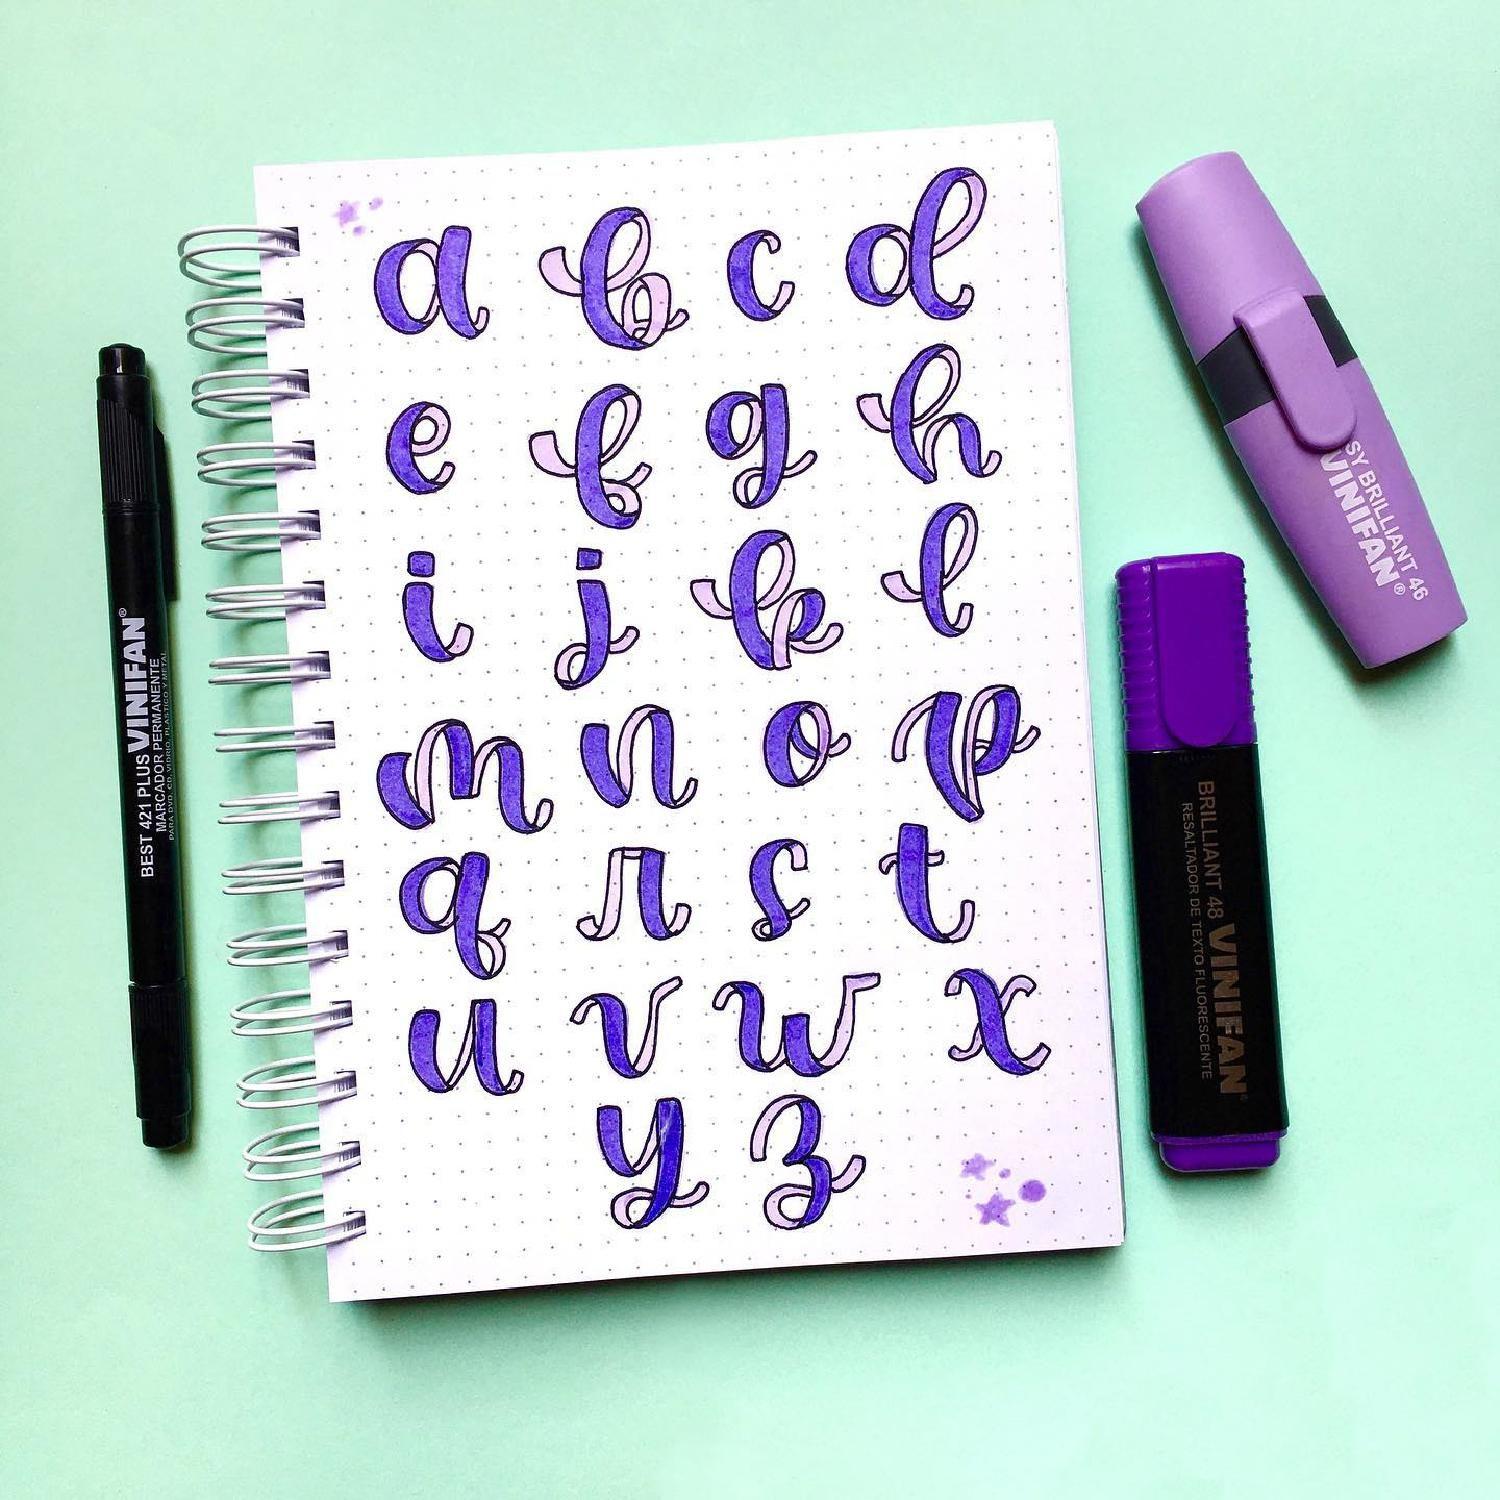 a b c d
e f g h
i j k l
m n o p
q r s t
u v w x
y z
BEST 421 PLUS VINIFAN®
MARCADOR PERMANENTE
PARA DVD, CD, VIDRIO, PLASTICO Y METAL
SY BRILLIANT 46
VINIFAN®
BRILLIANT 48 VINIFAN®
RESALTADOR DE TEXTO FLUORESCENTE